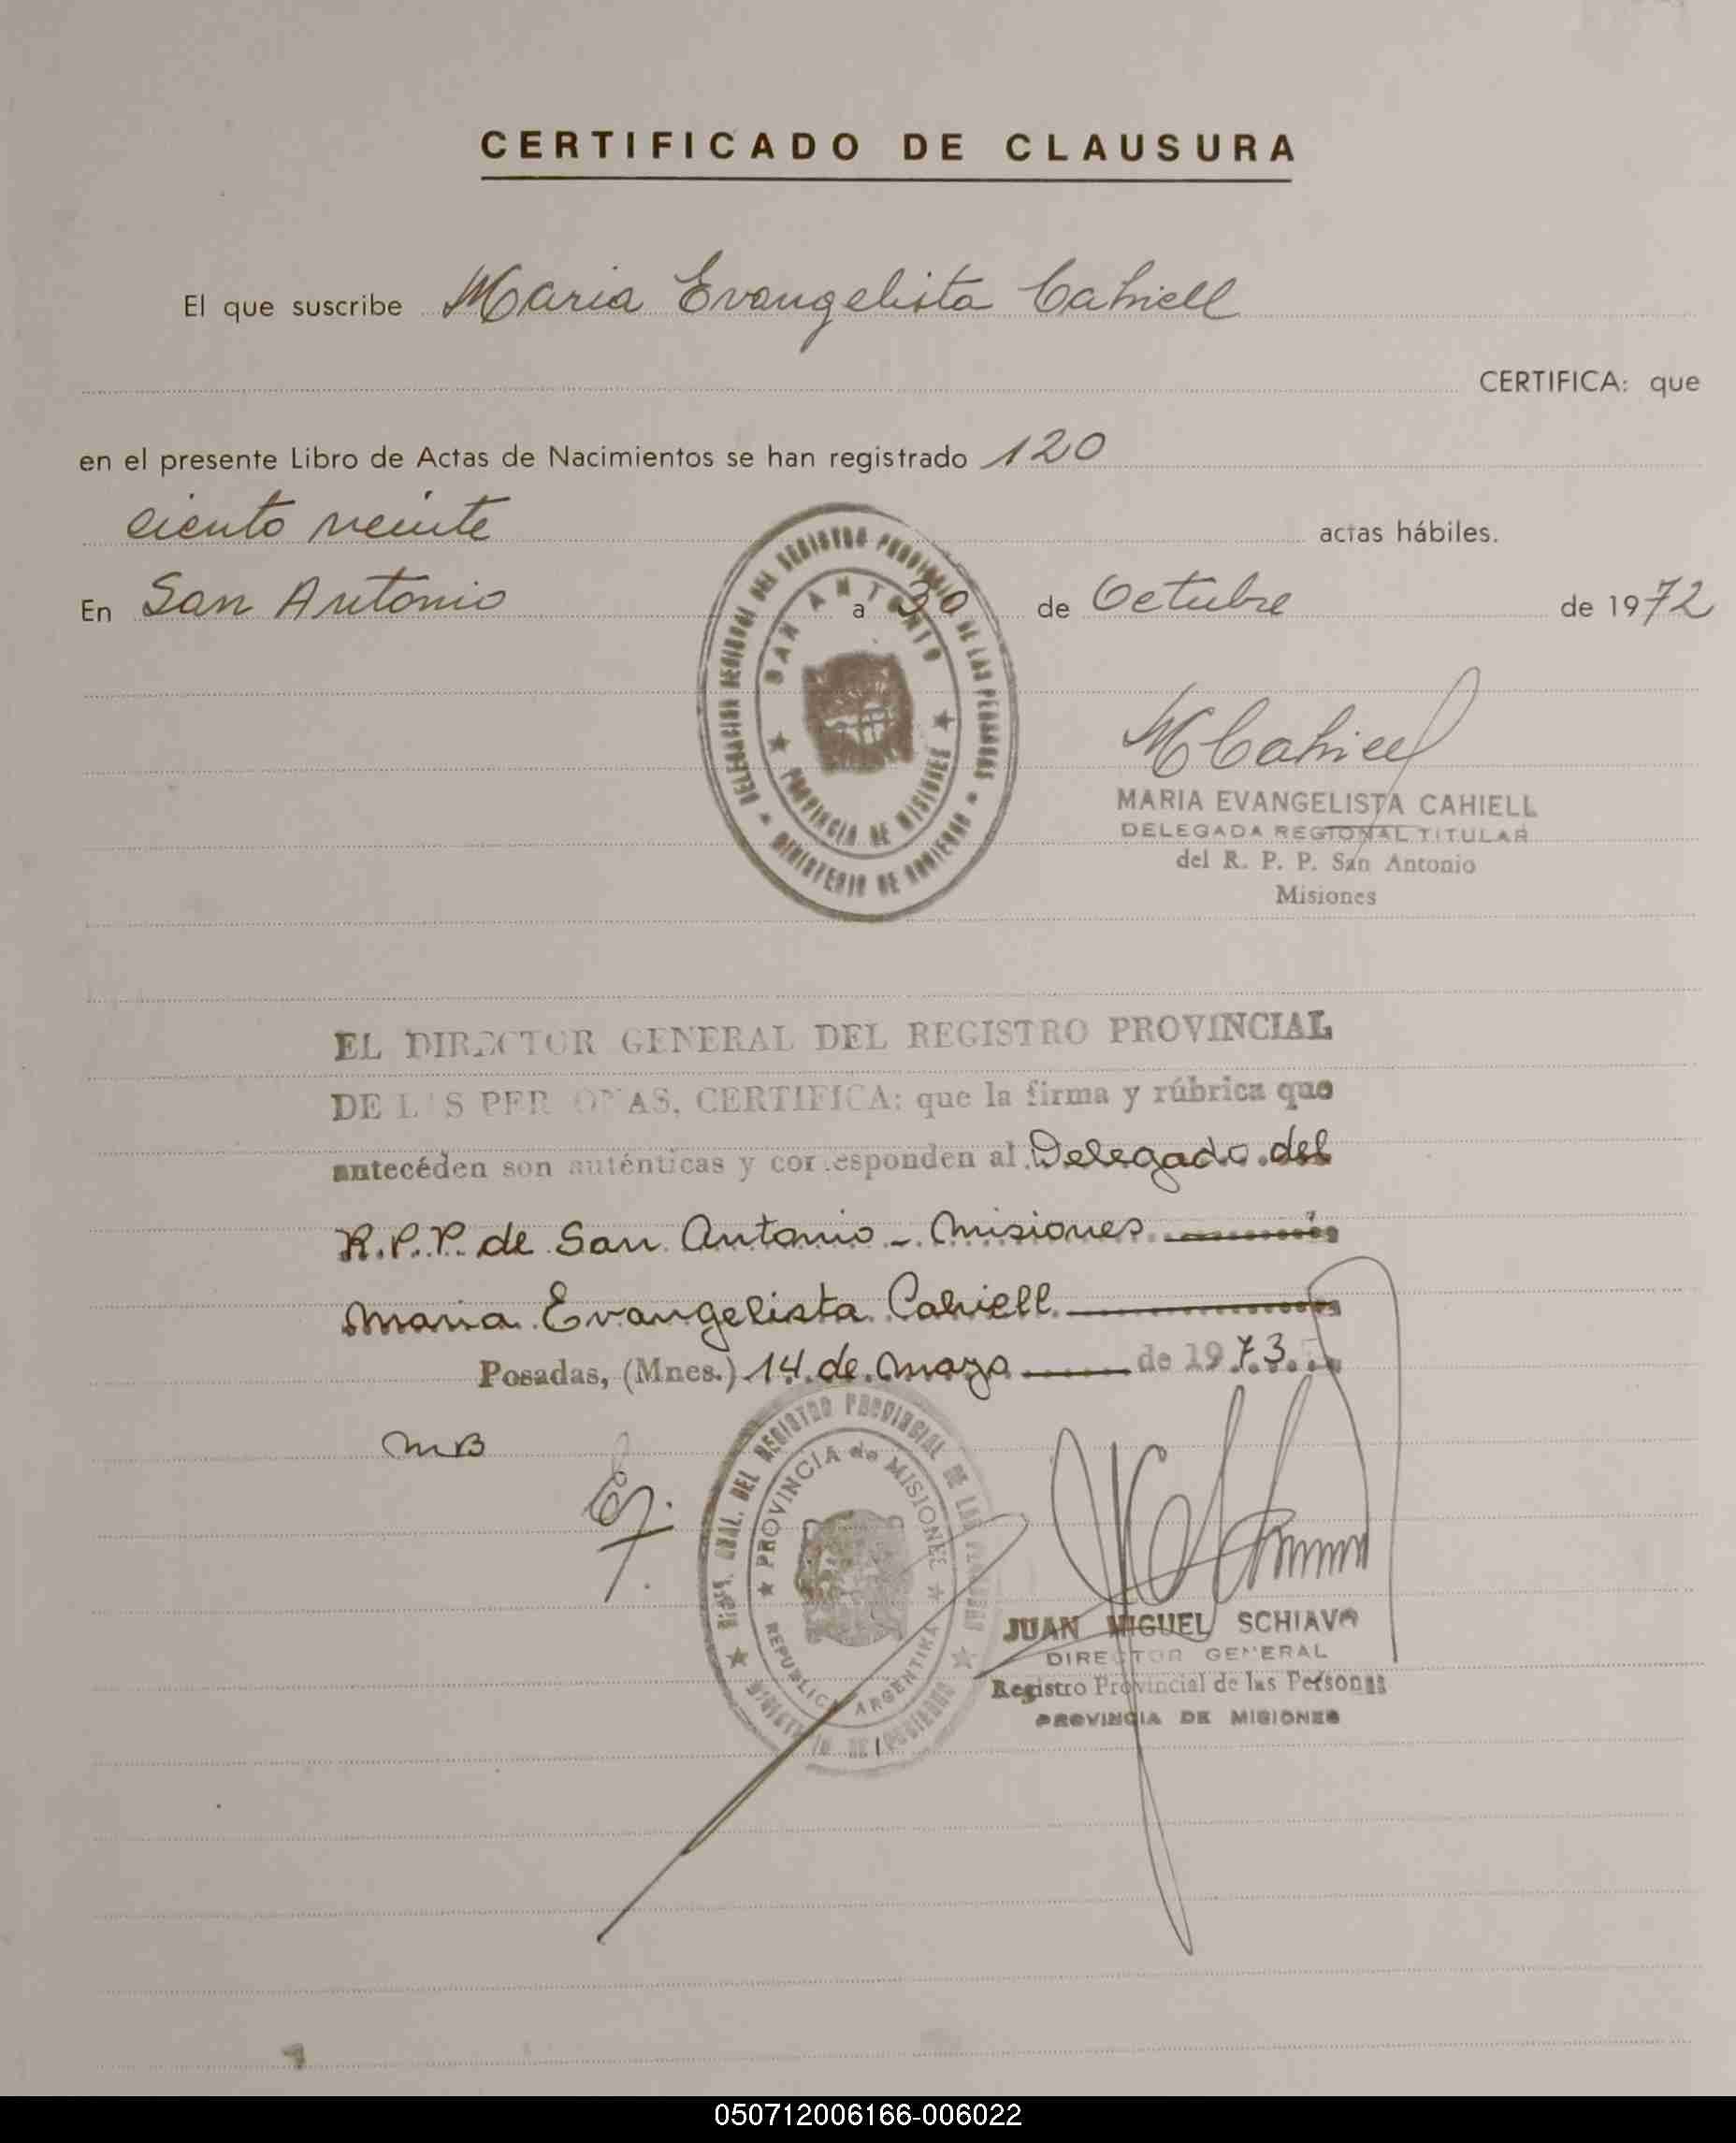 CERTIFICADO DE CLAUSURA
El que suscribe Maria Evangelista Cahiell
CERTIFICA: que
en el presente Libro de Actas de Nacimientos se han registrado 120
ciento veinte actas hábiles.
En San Antonio a 30 de Octubre de 1972
DELEGACION REGIONAL DEL REGISTRO PROVINCIAL DE LAS PERSONAS
SAN ANTONIO
PROVINCIA DE MISIONES
MINISTERIO DE GOBIERNO
MCahiell
MARIA EVANGELISTA CAHIELL
DELEGADA REGIONAL TITULAR
del R. P. P. San Antonio
Misiones
EL DIRECTOR GENERAL DEL REGISTRO PROVINCIAL
DE LAS PERSONAS, CERTIFICA: que la firma y rúbrica que
antecéden son auténticas y corresponden al Delegado del
R.P.P. de San Antonio - Misiones
Maria Evangelista Cahiell
Posadas, (Mnes.) 14 de Mayo de 1973.
MB
DIREC. GRAL. DEL REGISTRO PROVINCIAL DE LAS PERSONAS
PROVINCIA de MISIONES
REPUBLICA ARGENTINA
MINISTERIO DE GOBIERNO
JUAN MIGUEL SCHIAVO
DIRECTOR GENERAL
Registro Provincial de las Personas
PROVINCIA DE MISIONES
050712006166-006022